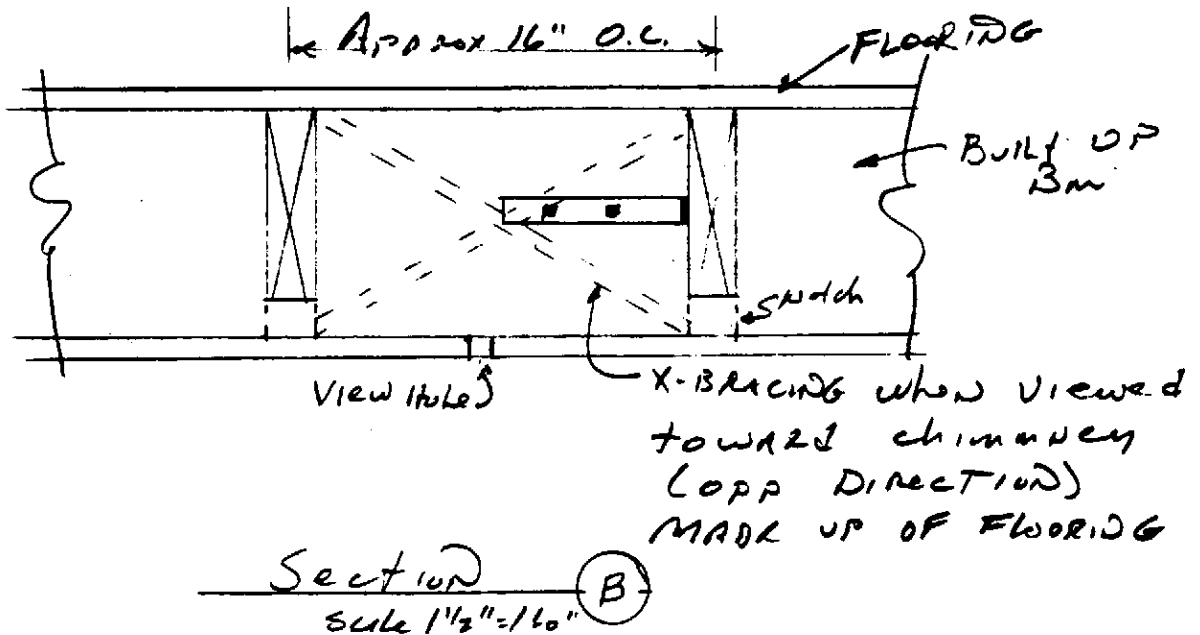 Approx 16" O.C.
FLOORING
Built UP
Bm
Notch
View Hole
X-BRACING when viewed
toward chimney
(opp DIRECTION)
MADE UP OF FLOORING
Section
B
Scale 1 1/2"=1'0"